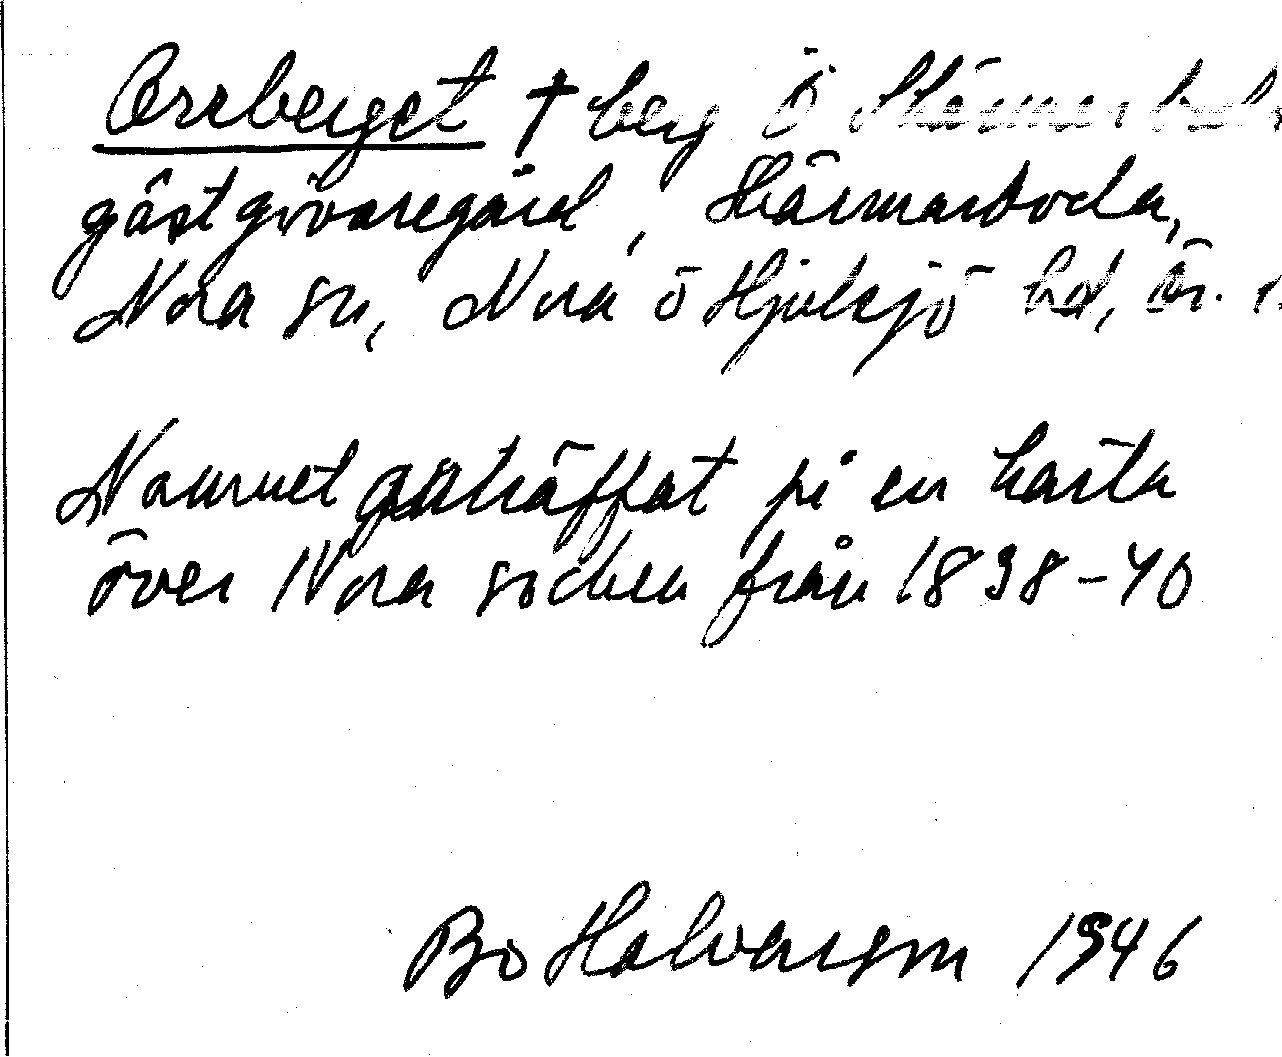 Orreberget † berg Ö Skärmarboda
gästgivaregård, Skärmarboda,
Nora sn, Nora o Hjulsjö hd, Ör.
Namnet påträffat på en karta
över Nora socken från 1838-40
Bo Halvarson 1946